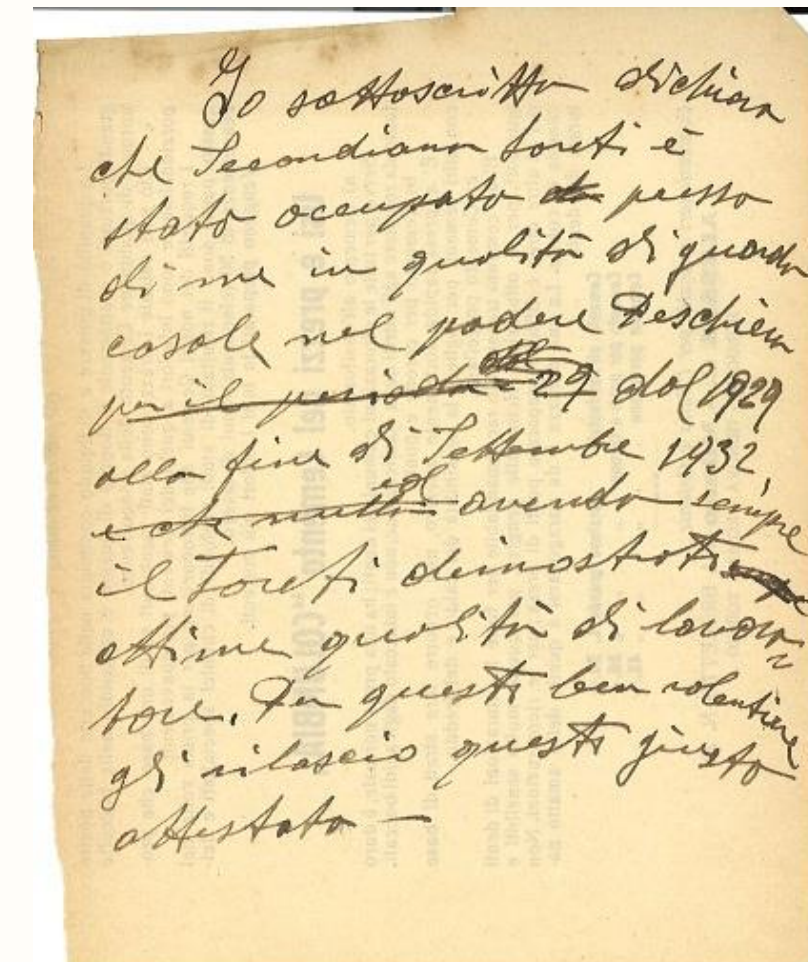 Io sottoscritto dichiara
che Secondiano Loreti è
stato occupato da presso
di me in qualità di guardia
casale nel podere Peschiera
per il periodo dal 29 dal 1929
alla fine di Settembre 1932,
e che avendo sempre
il Loreti dimostrato
ottime qualità di lavora-
tore. Per questo ben volentieri
gli rilascio questo giusto
attestato —